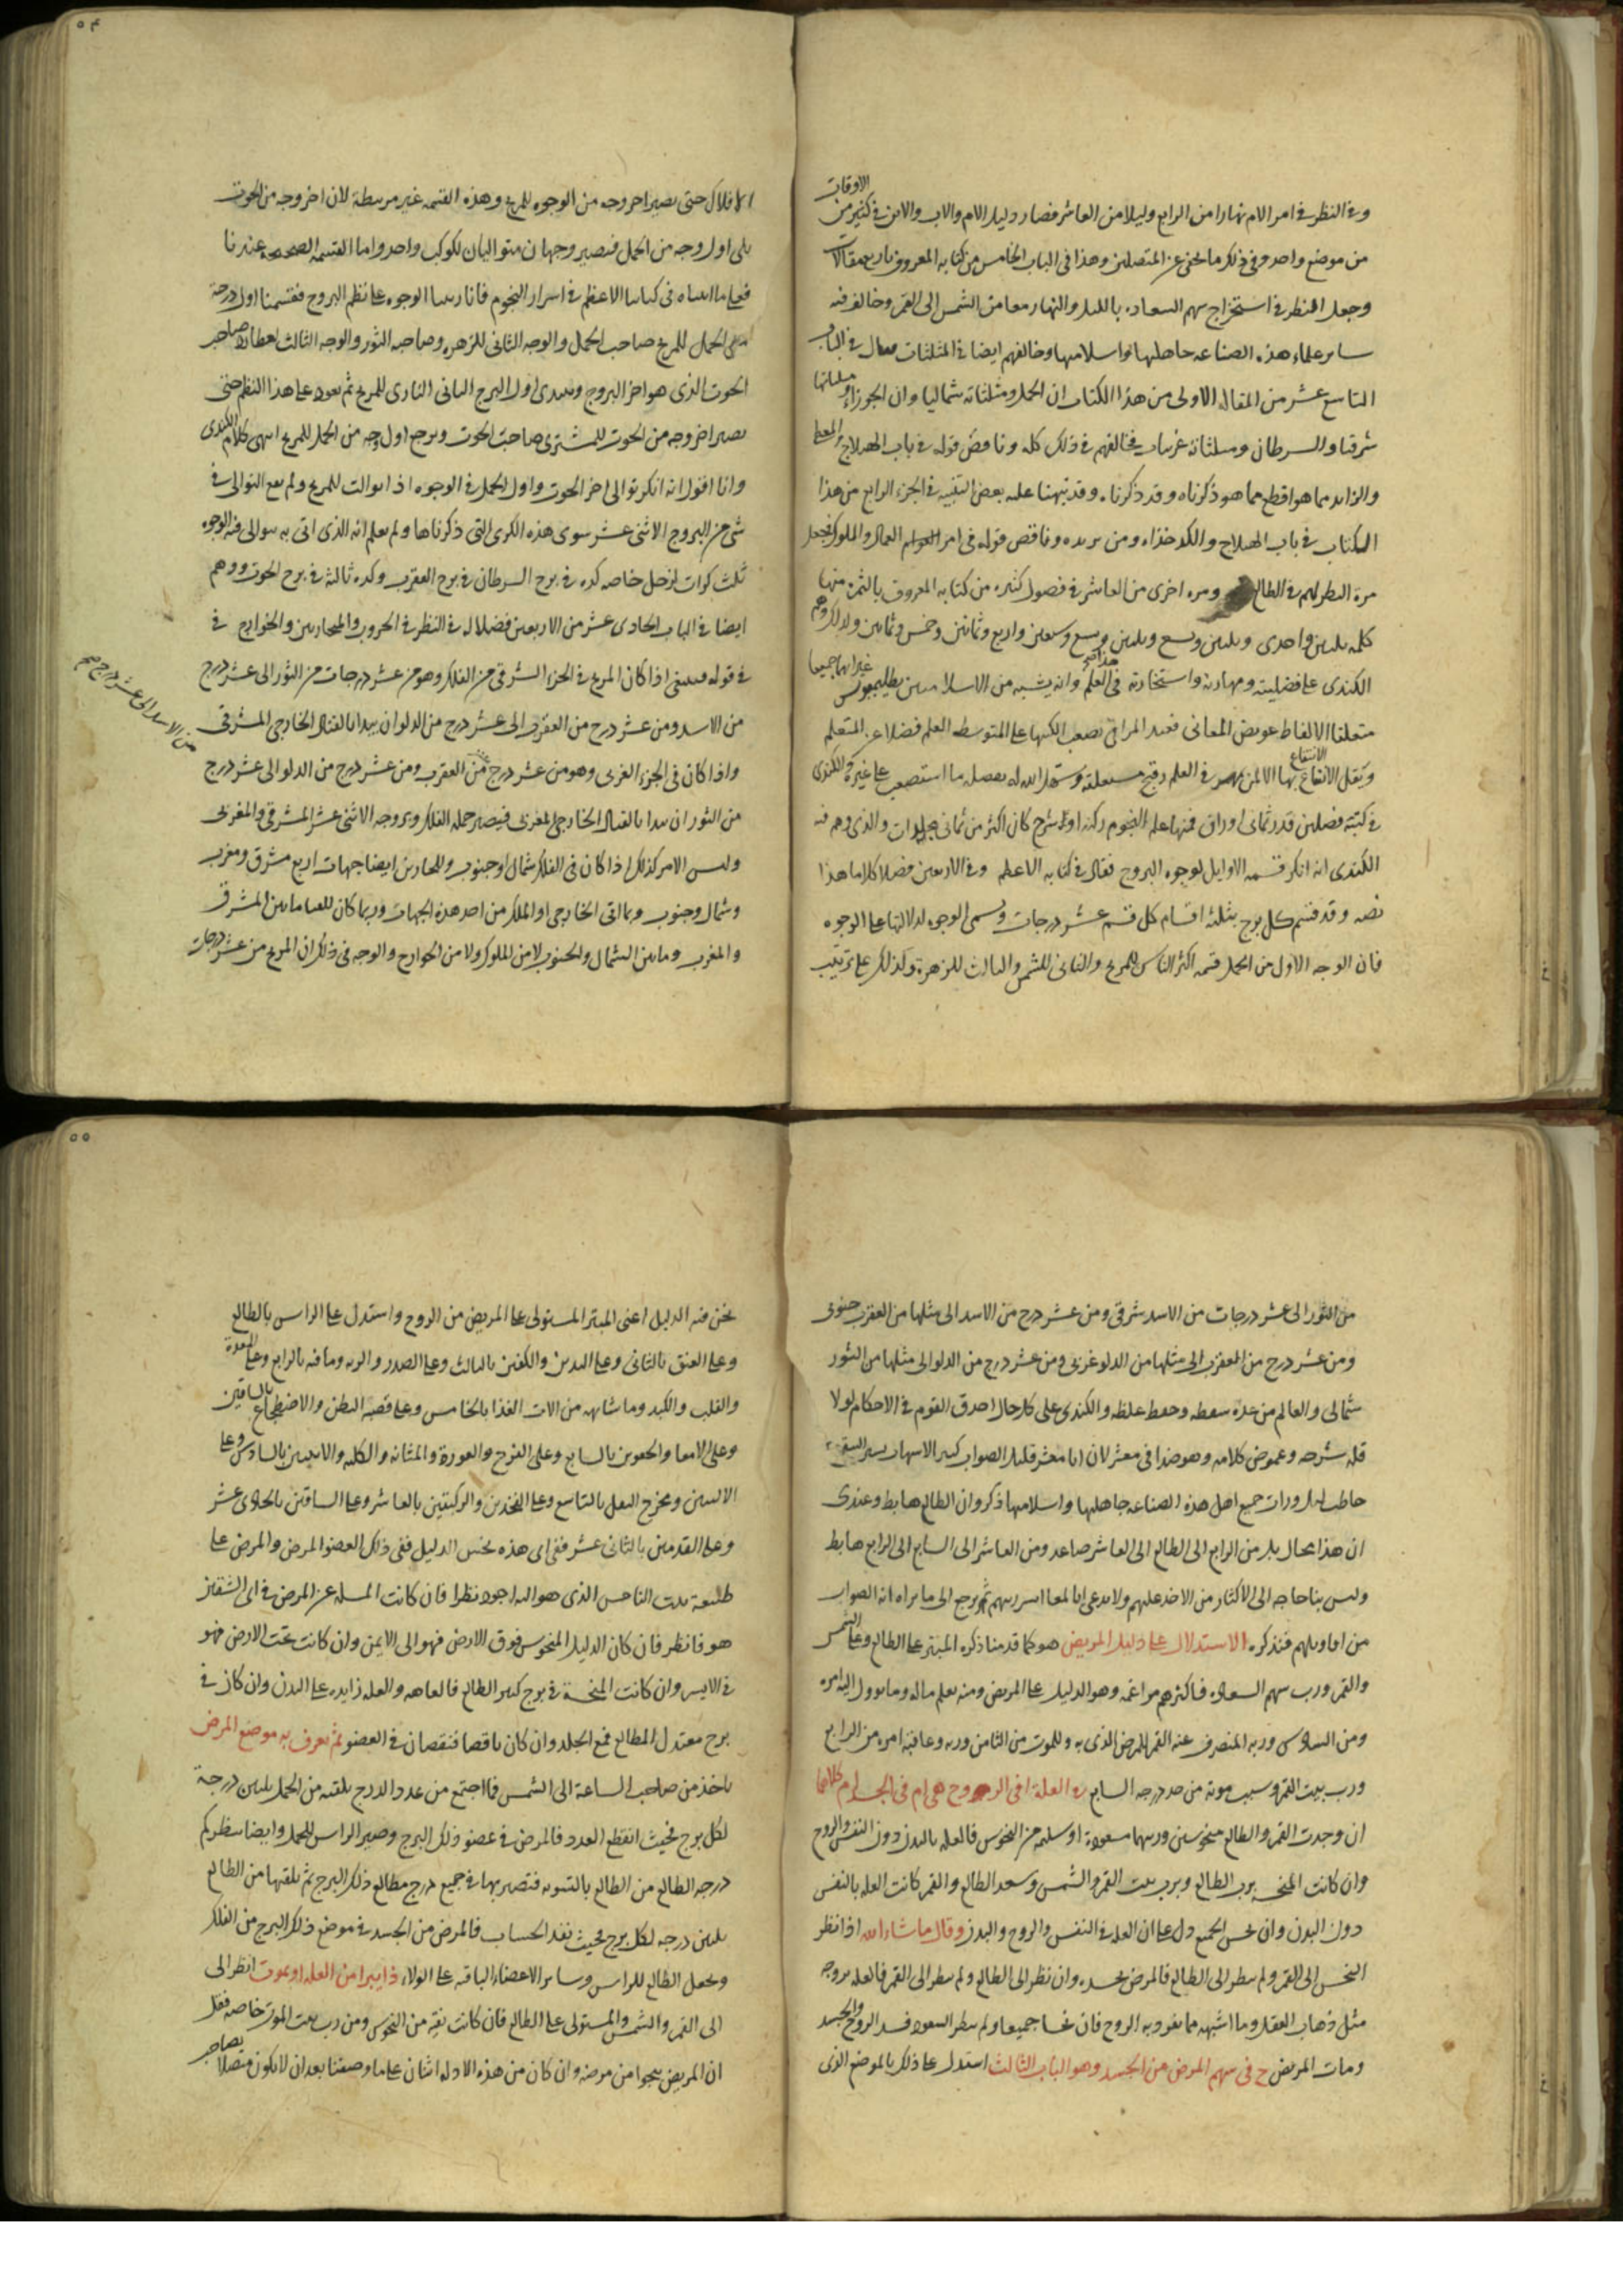 الاوقات
وفى النظر فى امر الام نهارا من الرابع وليلا من العاشر فصار دليل الام والاب والابن فى كثير من
من موضع واحد وفى ذلك ما يخفى عن المتصلين وهذا فى الباب الخامس من كتابه المعروف باربع مقالات
وجعل النظر فى استخراج سهم السعاده بالليل والنهار معا من الشمس الى القمر وخالف فيه
ساير علماء هذه الصناعه جاهليها واسلاميها وخالفهم ايضا فى المثلثات فقال فى الباب
التاسع عشر من المقاله الاولى من هذا الكتاب ان الحمل ومثلثاته شماليا وان الجوزاء ومثلثاتها
شرقيا والسرطان ومثلثاته غربيات فخالفهم فى ذلك كله وناقض قوله فى باب الهيلاج
والزايد مما هو اقطع مما هو ذكرناه وقد ذكرنا وقد نبهنا عليه بعض التنبيه فى الجزء الرابع من هذا
الكتاب فى باب الهيلاج والكدخذاه ومن يريده وناقض قوله فى امر العمال والملوك فجعل
مرة النظر لهم فى الطالع ومره اخرى من العاشر فى فصول كثيره من كتابه المعروف بالثمره منها
كلمه ثلثين واحدى وثلثين وتسع وثلثين وسبع وسبعين واربع وثمانين وخمس وثمانين ولذلك وهم
الكندى على فضيلته ومهارته واستخارته فى العلم وانه يشبه من الاسلاميين بطليموس غير انهما جميعا
متعلقا الالفاظ عويص المعانى فبعيد المرامى تصعب الكتبها على المتوسط العلم فضلا عن المتعلم
ويقل الانتفاع بها الا لمن فى العلم وسهل الله له بفضله ما استصعب على غيره والكندى
فى كتبه فضلين قدر ثمانى اوراق فيها علم النجوم ركنه اولا شرح كان اكثر من ثمانى مجلدات والذى وهم فيه
الكندى انه انكر قسمه الاوايل لوجوه البروج فقال فى كتابه الاعظم وفى الاربعين فصلا كلاما هذا
نصه وقد قسم كل برج بثلثة اقسام كل قسم عشر درجات وتسمى الوجوه لدلالتها على الوجوه
فان الوجه الاول من الحمل قسمه اكثر الناس للمريخ والثانى للشمس والثالث للزهرة وكذلك على ترتيب
الافلاك حتى يصير اخر وجه من الوجوه للمريخ وهذه القسمه غير مرتبطة لان اخر وجه من الحوت
يلى اول وجه من الحمل فتصير وجهان متواليان لكوكب واحد واما القسمه الصحيحه عندنا
فعلى ما اثبتناه فى كتابنا الاعظم فى اسرار النجوم فانا رتبنا الوجوه على نظم البروج فقسمنا اول درجة
من الحمل للمريخ صاحب الحمل والوجه الثانى للزهره وصاحبه الثور والوجه الثالث لعطارد صاحب
الحوت الذى هو اخر البروج ونبتدى اول البرج الثانى النارى للمريخ ثم نعود على هذا النظم حتى
يصير اخر وجه من الحوت للمشترى صاحب الحوت ويرجع اول وجه من الحمل للمريخ انتهى كلام الكندى
وانا اقول انه انكر توالى اخر الحوت واول الحمل فى الوجوه اذا توالت للمريخ ولم يقع التوالى فى
شى من البروج الاثنى عشر سوى هذه الكرى التى ذكرناها ولم يعلم انه الذى اتى به يتوالى فيه الوجوه
ثلث كرات لزحل خاصه كره فى برج السرطان فى برج العقرب وكره ثالثة فى برج الحوت ووهم
ايضا فى الباب الحادى عشر من الاربعين فصلا لـ فى النظر فى الحروب والمحاربين والخوارج فى
فى قوله فينبغى اذا كان المريخ فى الجزء الشرقى من الفلك وهو من عشر درجات من الثور الى عشر درج
من الاسد الى عشر درج صح
من الاسد ومن عشر درج من العقرب الى عشر درج من الدلو ان يبدا بالقتال الخارجى المشرقى
واذا كان فى الجزء الغربى وهو من عشر درج من العقرب ومن عشر درج من الدلو الى عشر درج
من الثور ان يبدا بالقتال الخارجى المغربى فيصير جمله الفلك وبروجه الاثنى عشر المشرقى والمغربى
وليس الامر كذلك اذا كان فى الفلك شمال وجنوب وللمحاربين ايضا جهات اربع مشرق ومغرب
وشمال وجنوب وبما اتى الخارجى او الملك من احد هذه الجهات وربما كان للقيا ما بين المشرق
والمغرب وما بين الشمال والجنوب لا من الملوك ولا من الخوارج والوجه فى ذلك ان المريخ من عشر درجات
من الثور الى عشر درجات من الاسد شرقى ومن عشر درج من الاسد الى مثلها من العقرب جنوبى
ومن عشر درج من العقرب الى مثلها من الدلو غربى ومن عشر درج من الدلو الى مثلها من الثور
شمالى والعالم من عدة سقطه وحفظ غلطه والكندى على كل حال احدق القوم فى الاحكام لولا
قله شرحه وغموض كلامه وهو ضد ابى معشر لان ابا معشر قليل الصواب كثير الاسهاب
جميع اهل هذه الصناعه جاهليها واسلاميها ذكروا ان الطالع هابط وعندى
ان هذا محال بل من الرابع الى الطالع الى العاشر صاعد ومن العاشر الى السابع الى الرابع هابط
وليس بنا حاجه الى الاكثار من الاخذ عليهم ولا ندعى ثم نرجع الى ما نراه انه الصواب
من اقاويلهم فنذكره الاستدلال على دليل المريض هو كما قدمنا ذكره المبتز على الطالع وعلى الشمس
والقمر ورب سهم السعاده فاكثرهم مراغمه وهو الدليل على المريض ومنه يعلم ماله وما يوول اليه امره
ومن السادس وربه المنصرف عنه القمر المرض الذى به وللموت من الثامن وربه وعاقبة امره من الرابع
ورب بيت القمر وسبب موته من حد درجه السابع العلة افى الروح هى ام فى الجسد ام كلاهما
ان وجدت القمر والطالع منحوسين وربهما مسعودة او سليمه من النحوس فالعله بالبدن دون النفس والروح
وان كانت المنحسه برب الطالع وبرب بيت القمر والشمس وسعد الطالع والقمر كانت العله بالنفس
دون البدن وان نحس الجميع دل على ان العله فى النفس والروح والبدن وقال ماشاء الله اذا نظر
النحس الى القمر ولم ينظر الى الطالع فالمرض بجسده وان نظر الى الطالع ولم ينظر الى القمر فالعله بروحه
مثل ذهاب العقل وما اشبهه مما يعرو به الروح فان نحسا جميعا ولم ينظر السعود فسد الروح والجسد
ومات المريض ح فى سهم المرض من الجسد وهو الباب الثالث استدل على ذلك بالموضع الذى
نحن فيه الدليل اعنى المبتز المستولى على المريض من الروح واستدل على الراس بالطالع
وعلى العنق بالثانى وعلى اليدين والكتفين بالثالث وعلى الصدر والريه وما فيه بالرابع وعلى المعدة
والقلب والكبد وما شابهه من الات الغذا بالخامس وعلى قصبة البطن والاضطجاع بالساقين
وعلى الامعا والحقوين بالسابع وعلى الفرج والعورة والمثانه والكله والانثيين بالسادس وعلى
الاليتين ومخرج الثفل بالتاسع وعلى الفخذين والركبتين بالعاشر وعلى الساقين بالحادى عشر
وعلى القدمين بالثانى عشر ففى اى هذه نحس الدليل ففى ذلك العضو المرض والمرض على
طبيعة بيت الناحس الذى هو اليه اجود نظرا فان كانت المسله عن المرض فى اى الشقين
هو فانظر فان كان الدليل المنحوس فوق الارض فهو الى الايمن وان كانت تحت الارض فهو
فى الايسر وان كانت المنحسة فى برج كثير الطالع فالعاهه والعله زايده على البدن وان كان فى
برج معتدل المطالع فمع الجلد وان كان ناقصا فنقصان فى العضو ثم تعرف به موضع المرض
تاخذ من صاحب الساعة الى الشمس فما اجتمع من عدد الدرج تلقيه من الحمل ثلثين درجة
لكل برج فحيث انقطع العدد فالمرض فى عضو ذلك البرج وصير الراس للحمل وايضا ينظر كم
درجه الطالع من الطالع بالتسويه فتصير بها فى جميع درج مطالع ذلك البرج ثم تلقيها من الطالع
ثلثين درجه لكل برج فحيث نفد الحساب فالمرض من الجسد فى موضع ذلك البرج من الفلك
ونجعل الطالع للراس وساير الاعضاء الباقيه على الولاء ذا يبرا من العله او يموت انظر الى
الى القمر والشمس والمستولى على الطالع فان كانت نقيه من النحوس ومن رب بيت الموت خاصه فقل
ان المريض ينجوا من مرضه وان كان من هذه الادله اثنان على ما وصفنا بعد ان لا يكون متصلا بصاحب